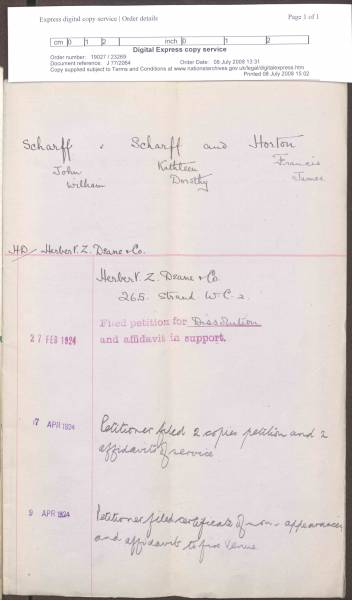 Express digital copy service | Order details
Page 1 of 1
cm 0 1 2 inch 0 1 2
Digital Express copy service
Order number: 19027 / 23269
Document reference: J 77/2064
Order Date: 08 July 2009 13:31
Copy supplied subject to Terms and Conditions at www.nationalarchives.gov.uk/legal/digitalexpress.htm
Printed 08 July 2009 15:02
Scharff v Scharff and Horton
John Kathleen Francis
William Dorothy James
HD/ Herbert. Z. Deane & Co.
Herbert. Z. Deane & Co
265. Strand W.C-2.
Filed petition for Dissolution
27 FEB 1924 and affidavit in support.
7 APR 1924 Petitioner filed 2 copies petition and 2
affidavits of service
9 APR 1924 Petitioner filed certificate of non-appearances
and affidavits to fix Venue